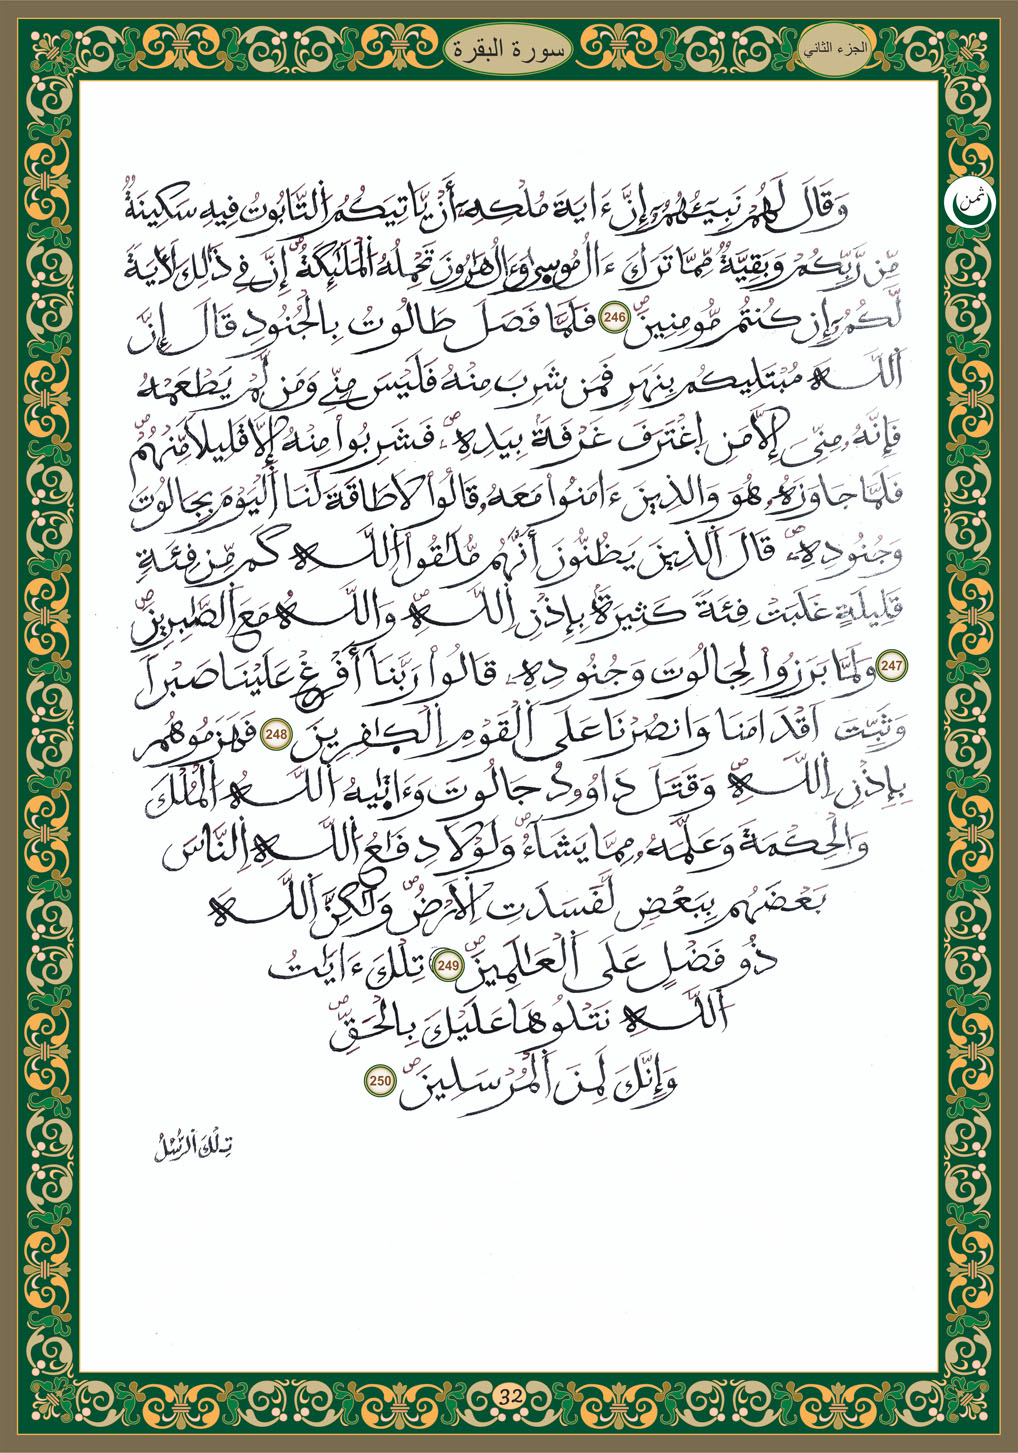 الجزء الثاني
سورة البقرة
ثمن
وَقَالَ لَهُمْ نَبِيـُٔهُمُۥٓ إِنَّ ءَايَةَ مُلْكِهِۦٓ أَنْ يَّاتِيَكُمُ التَّابُوتُ فِيهِ سَكِينَةٌ
مِّن رَّبِّكُمْ وَبَقِيَّةٌ مِّمَّا تَرَكَ ءَالُ مُوسِىٰ وَءَالُ هَٰرُونَ تَحْمِلُهُ الْمَلَٰٓئِكَةُۖ إِنَّ فِي ذَٰلِكَ لَأٓيَةً
لَّكُمُۥٓ إِن كُنتُم مُّومِنِينَۖ 246 فَلَمَّا فَصَلَ طَالُوتُ بِالْجُنُودِ قَالَ إِنَّ
اَللَّهَ مُبْتَلِيكُم بِنَهَرٍ فَمَن شَرِبَ مِنْهُ فَلَيْسَ مِنِّي وَمَن لَّمْ يَطْعَمْهُ
فَإِنَّهُۥ مِنِّيَ إِلَّا مَنِ اِغْتَرَفَ غَرْفَةَۢ بِيَدِهِۦۖ فَشَرِبُوا۟ مِنْهُ إِلَّا قَلِيلًا مِّنْهُمْۖ
فَلَمَّا جَاوَزَهُۥ هُوَ وَالذِينَ ءَامَنُوا۟ مَعَهُۥ قَالُوا۟ لَا طَاقَةَ لَنَا اَلْيَوْمَ بِجَالُوتَ
وَجُنُودِهِۦۖ قَالَ اَلذِينَ يَظُنُّونَ أَنَّهُم مُّلَٰقُوا۟ اُللَّهِ كَم مِّن فِئَةٍ
قَلِيلَةٍ غَلَبَتْ فِئَةً كَثِيرَةَۢ بِإِذْنِ اِللَّهِۖ وَاللَّهُ مَعَ اَلصَّٰبِرِينَۖ
247 وَلَمَّا بَرَزُوا۟ لِجَالُوتَ وَجُنُودِهِۦ قَالُوا۟ رَبَّنَآ أَفْرِغْ عَلَيْنَا صَبْرًا
وَثَبِّتَ اَقْدَامَنَا وَانصُرْنَا عَلَى اَلْقَوْمِ اِلْكَٰفِرِينَ 248 فَهَزَمُوهُم
بِإِذْنِ اِللَّهِۖ وَقَتَلَ دَاوُۥدُ جَالُوتَ وَءَاتَىٰهُ اُللَّهُ اُلْمُلْكَ
وَالْحِكْمَةَ وَعَلَّمَهُۥ مِمَّا يَشَآءُۖ وَلَوْلَا دِفَٰعُ اُللَّهِ اِلنَّاسَ
بَعْضَهُم بِبَعْضٍ لَّفَسَدَتِ اِلَارْضُۖ وَلَٰكِنَّ اَللَّهَ
ذُو فَضْلٍ عَلَى اَلْعَٰلَمِينَۖ 249 تِلْكَ ءَايَٰتُ
اُللَّهِ نَتْلُوهَا عَلَيْكَ بِالْحَقِّۖ
وَإِنَّكَ لَمِنَ اَلْمُرْسَلِينَۖ 250
تِلْكَ اَلرُّسُلُ
32